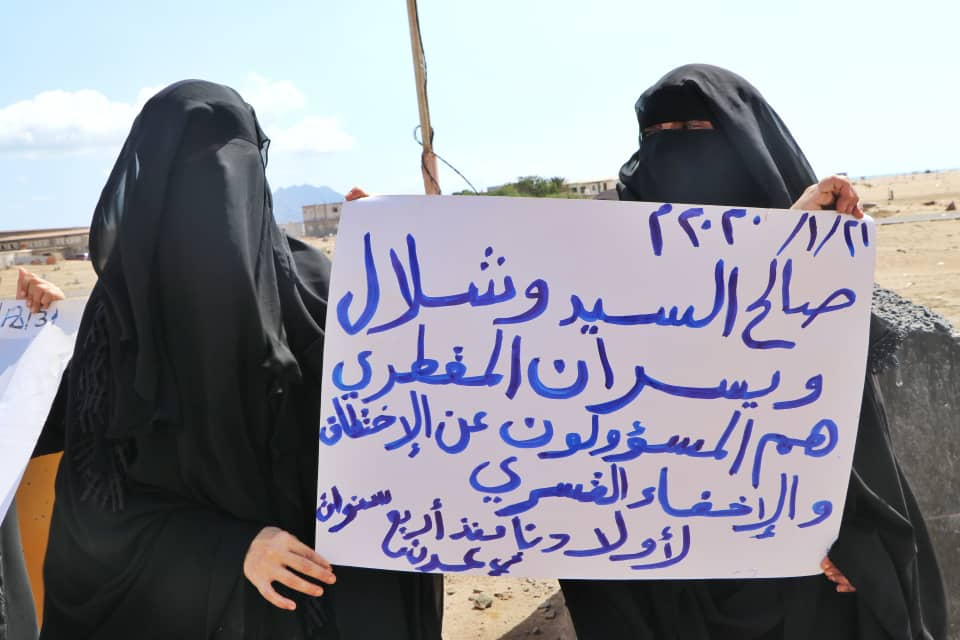 ٢١/١/٢٠٢٠م
صالح السيد وشلال
ويسران المقطري
هم المسؤولون عن الإختطاف
والإخفاء القسري
لأولادنا منذ أربع سنوات
في عدن